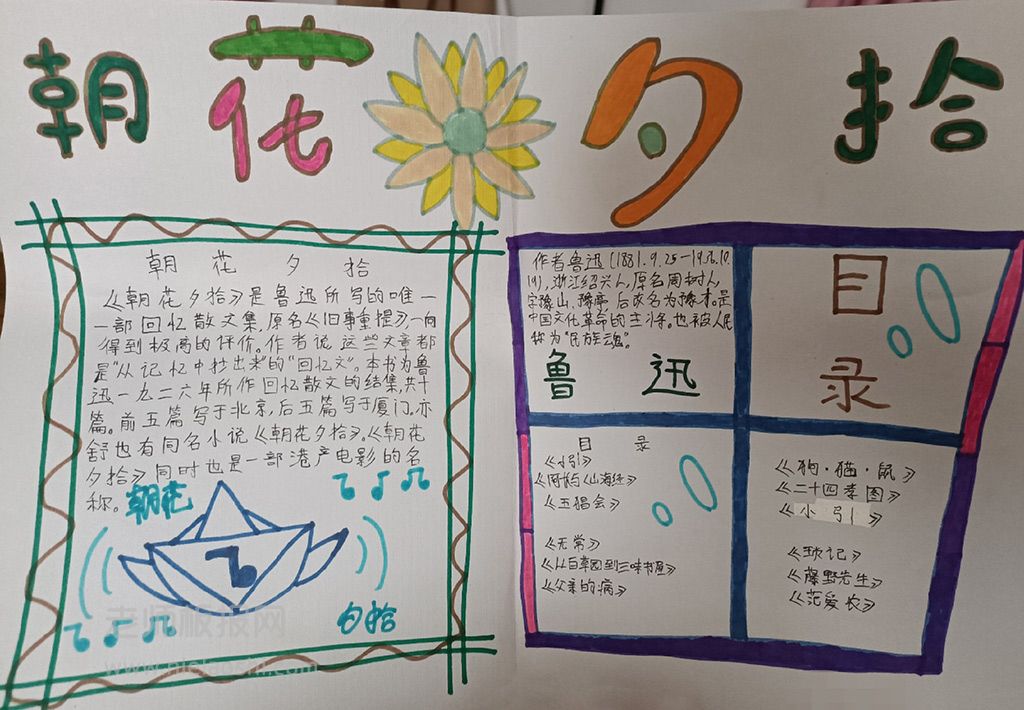 朝花夕拾
朝 花 夕 拾
《朝花夕拾》是鲁迅所写的唯一
一部回忆散文集,原名《旧事重提》,一向
得到极高的评价。作者说,这些文章都
是“从记忆中抄出来”的“回忆文”。本书为鲁
迅一九二六年所作回忆散文的结集,共十
篇。前五篇写于北京,后五篇写于厦门。亦
舒也有同名小说《朝花夕拾》。《朝花
夕拾》同时也是一部港产电影的名
称。
朝花
夕拾
作者鲁迅(1881.9.25—19
19),浙江绍兴人,原名周树人,
字豫山、豫亭,后改名为豫才。是
中国文化革命的主将。也被人民
称为“民族魂”。
鲁 迅
目
录
目 录
《小引》
《阿长与《山海经》
《五猖会》
《无常》
《从百草园到三味书屋》
《父亲的病》
《狗·猫·鼠》
《二十四孝图》
《小引》
《琐记》
《藤野先生》
《范爱农》
老师板报网